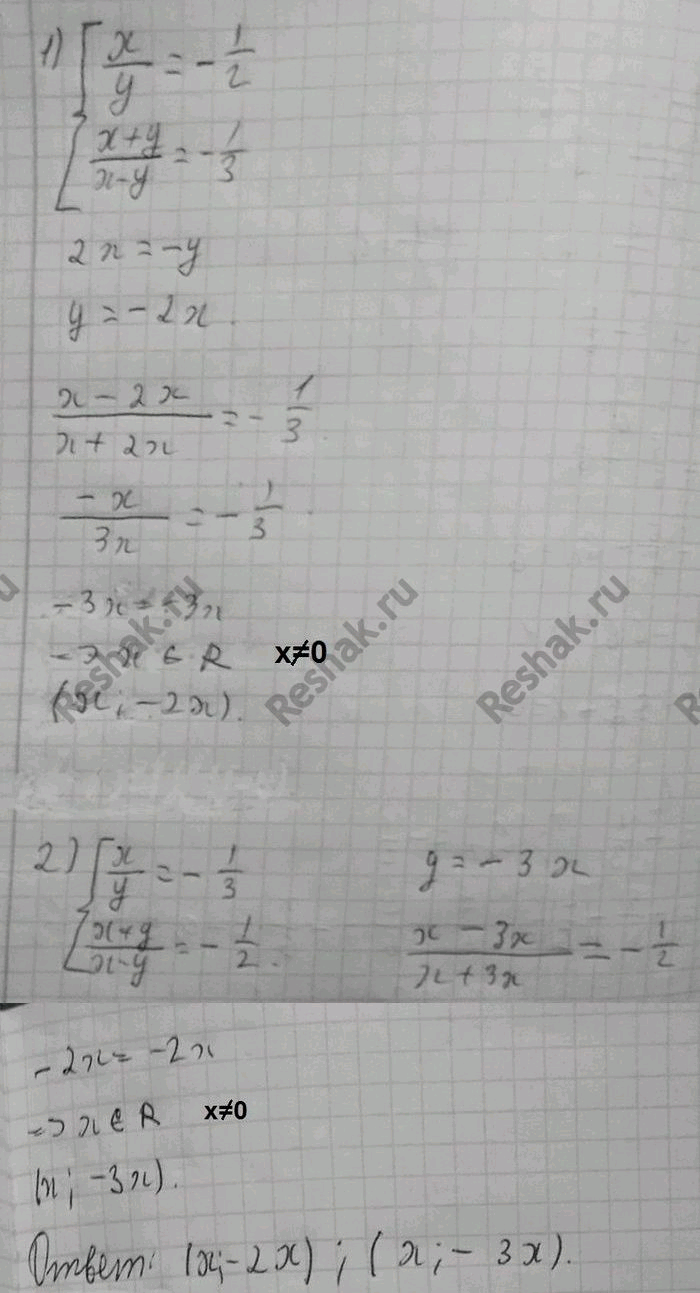 1) { x/y = - 1/2
{ (x+y)/(x-y) = - 1/3
2x = -y
y = -2x.
(x - 2x)/(x + 2x) = - 1/3.
(-x)/(3x) = - 1/3
-3x = -3x
=> x ∈ R x≠0
(x; -2x).
Reshak.ru Reshak.ru Reshak.ru
2) { x/y = - 1/3 y = - 3x
{ (x+y)/(x-y) = - 1/2. (x - 3x)/(x + 3x) = - 1/2
-2x = -2x
=> x ∈ R x≠0
(x; -3x).
Ответ: (x; -2x); (x; - 3x).